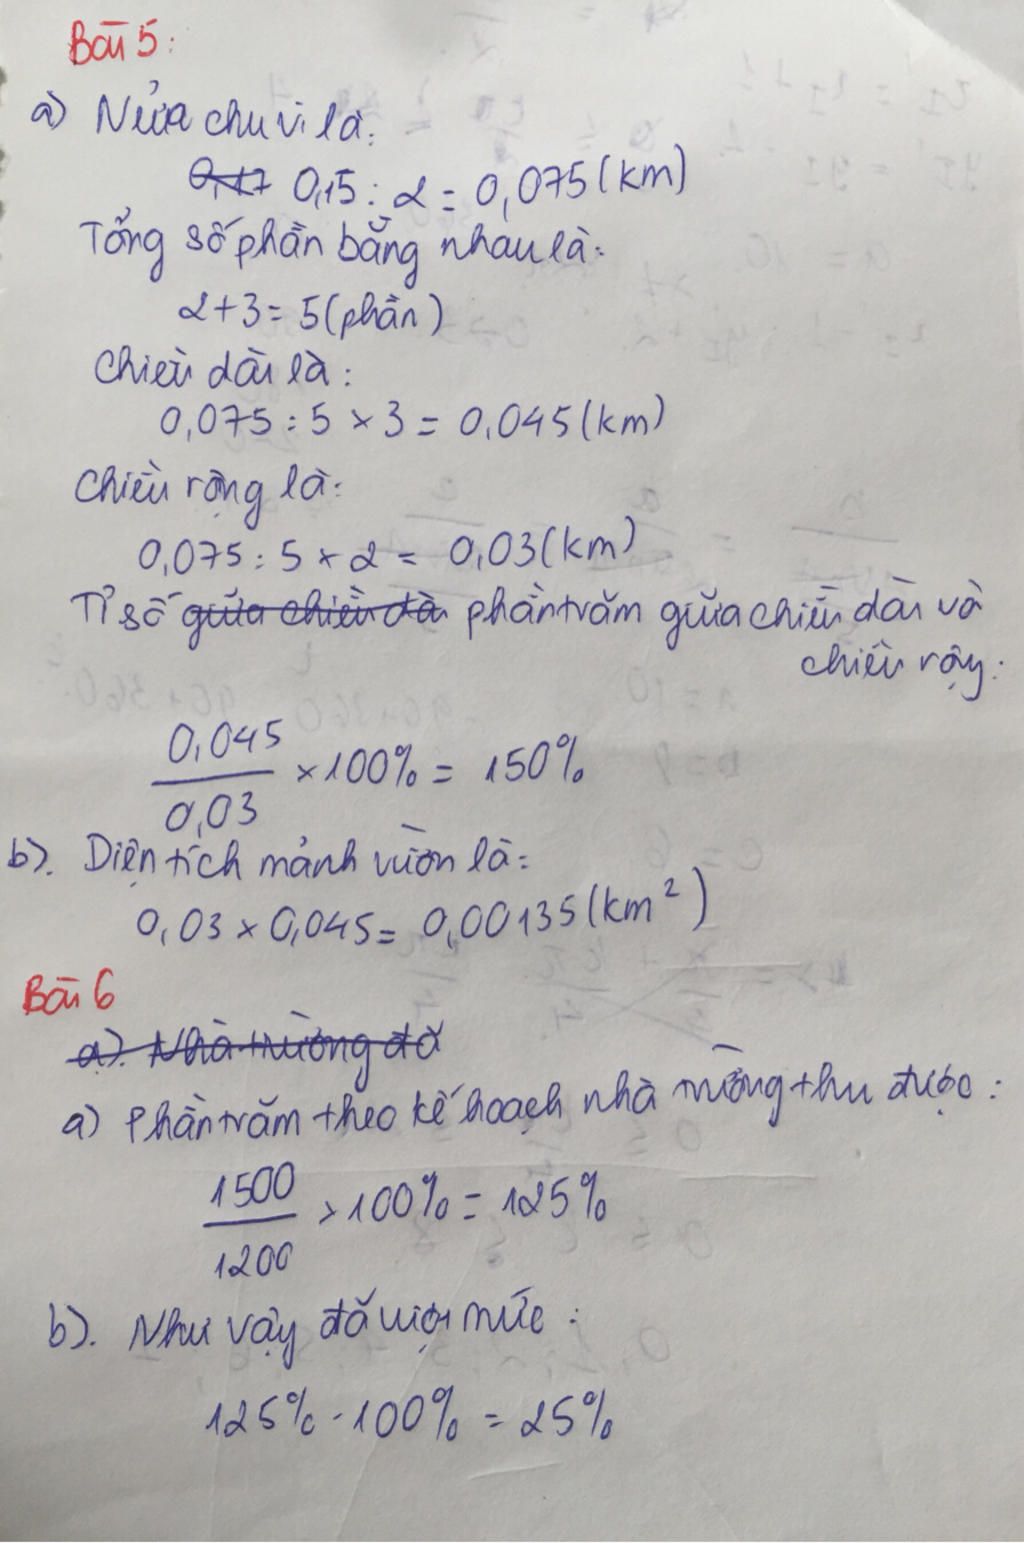 Bài 5:
a) Nửa chu vi là:
0,15 : 2 = 0,075 (km)
Tổng số phần bằng nhau là:
2 + 3 = 5 (phần)
Chiều dài là:
0,075 : 5 × 3 = 0,045 (km)
Chiều rộng là:
0,075 : 5 × 2 = 0,03 (km)
Tỉ số giữa chiều dài phần trăm giữa chiều dài và
chiều rộng:
0,045
× 100% = 150%
0,03
b). Diện tích mảnh vườn là:
0,03 × 0,045 = 0,00135 (km²)
Bài 6
a). Nhà trường đã
a) Phần trăm theo kế hoạch nhà trường thu được:
1500
× 100% = 125%
1200
b). Như vậy đã vượt mức:
125% - 100% = 25%